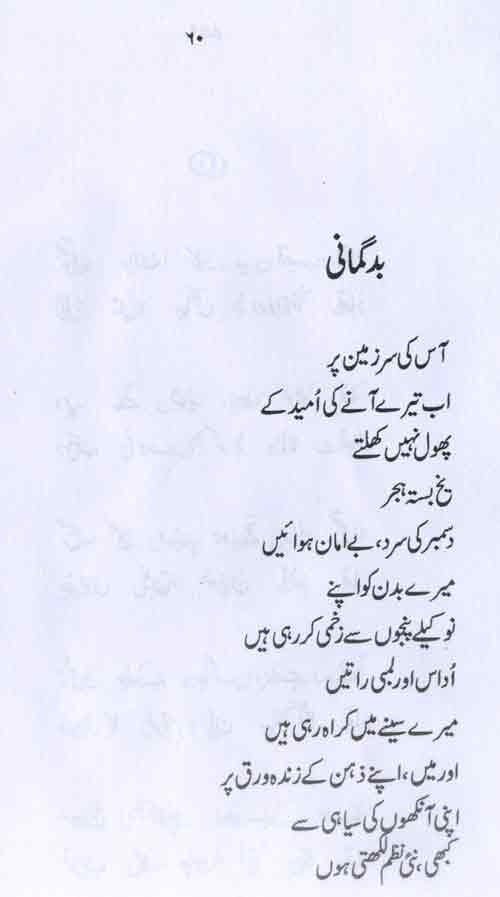 ۶۰
بدگمانی
آس کی سرزمین پر
اب تیرے آنے کی اُمید کے
پھول نہیں کھلتے
یخ بستہ ہجر
دسمبر کی سرد، بے امان ہوائیں
میرے بدن کو اپنے
نوکیلے پنجوں سے زخمی کر رہی ہیں
اُداس اور لمبی راتیں
میرے سینے میں کراہ رہی ہیں
اور میں، اپنے ذہن کے زندہ ورق پر
اپنی آنکھوں کی سیاہی سے
کبھی، نئی نظم لکھتی ہوں